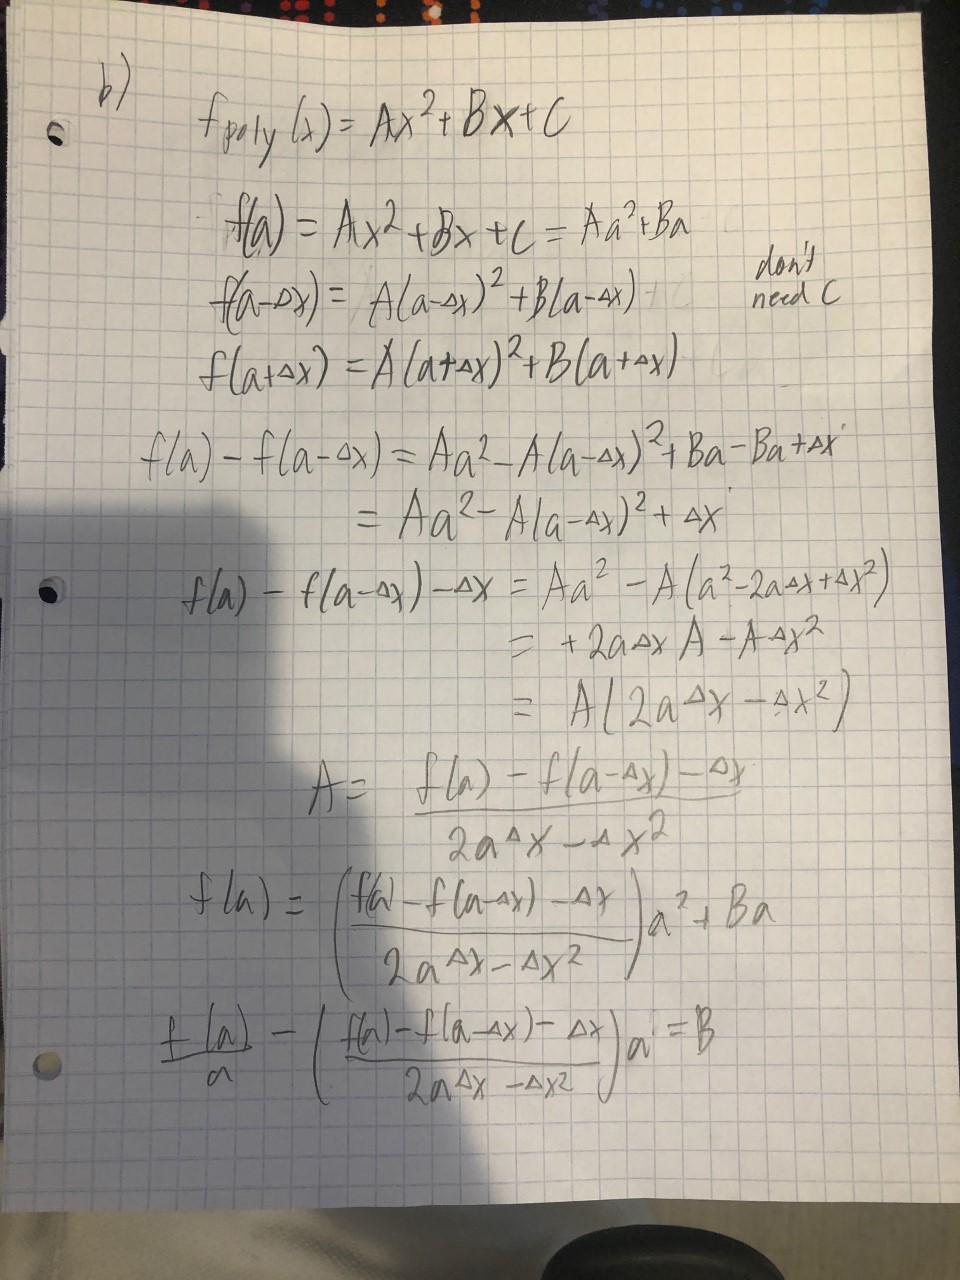 b)
f_poly(x) = Ax² + Bx + C
f(a) = Ax² + Bx + C = Aa² + Ba
don't need C
f(a-Δx) = A(a-Δx)² + B(a-Δx) + C
f(a+Δx) = A(a+Δx)² + B(a+Δx)
f(a) - f(a-Δx) = Aa² - A(a-Δx)² + Ba - Ba + Δx
= Aa² - A(a-Δx)² + Δx
f(a) - f(a-Δx) - Δx = Aa² - A(a² - 2aΔx + Δx²)
= +2aΔx A - AΔx²
= A(2aΔx - Δx²)
A = (f(a) - f(a-Δx) - Δx) / (2aΔx - Δx²)
f(a) = ((f(a) - f(a-Δx) - Δx) / (2aΔx - Δx²)) a² + Ba
f(a)/a - ((f(a) - f(a-Δx) - Δx) / (2aΔx - Δx²)) a = B